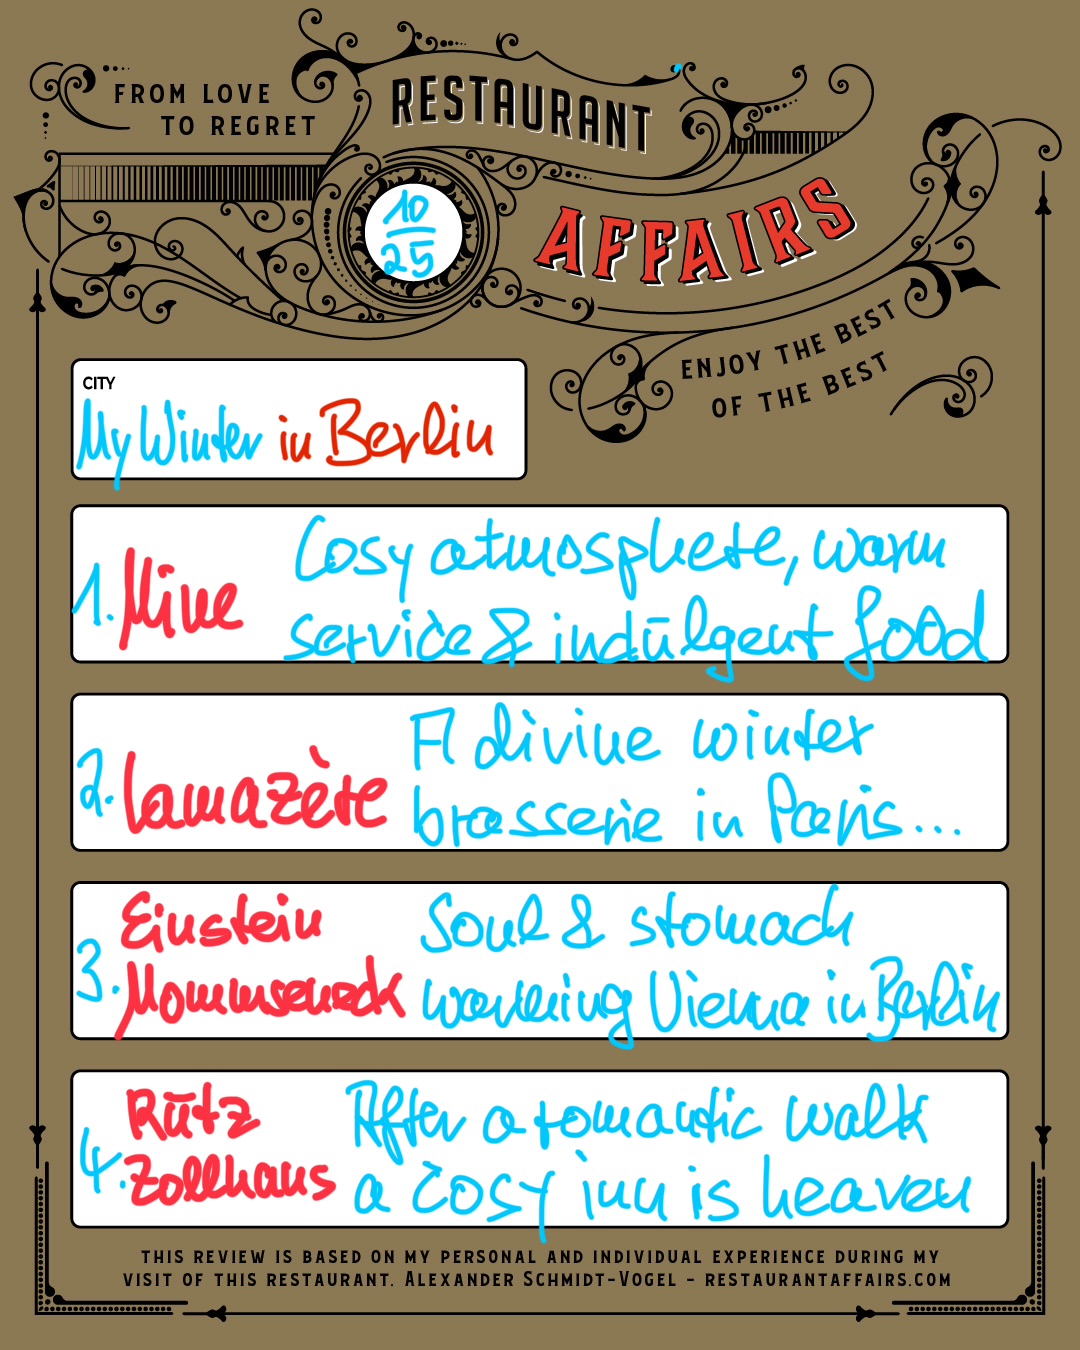 FROM LOVE
TO REGRET
RESTAURANT
AFFAIRS
10
25
ENJOY THE BEST
OF THE BEST
CITY
My Winter in Berlin
1. Mine
Cosy atmosphere, warm
service & indulgent food
2. Lamazère
A divine winter
brasserie in Paris...
3. Einstein
Mommseneck
Soul & stomach
warming Vienna in Berlin
4. Rutz
Zollhaus
After a romantic walk
a cosy inn is heaven
THIS REVIEW IS BASED ON MY PERSONAL AND INDIVIDUAL EXPERIENCE DURING MY
VISIT OF THIS RESTAURANT. ALEXANDER SCHMIDT-VOGEL - RESTAURANTAFFAIRS.COM